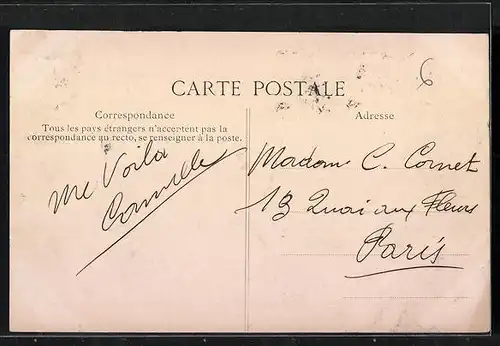 6
CARTE POSTALE
Correspondance
Tous les pays étrangers n'acceptent pas la
correspondance au recto, se renseigner à la poste.
Me Voila
Adresse
Madame C. Cornet
13 Quai aux Fleurs
Paris